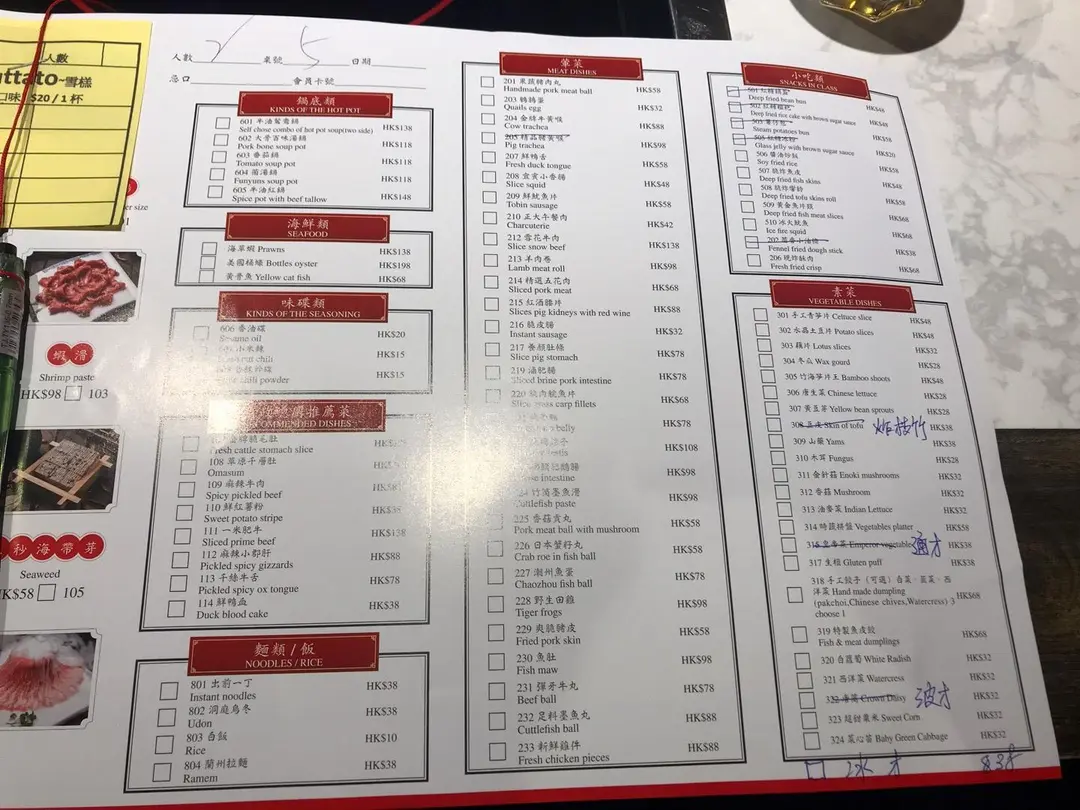 人數
ttato~雪糕
口味 $20 / 1 杯
er size
蝦滑
Shrimp paste
HK$98 103
秒海帶芽
Seaweed
K$58 105
人數 桌號 5 日期
忌口 會員卡號
鍋底類
KINDS OF THE HOT POT
601 牛油鴛鴦鍋
Self chose combo of hot pot soup(two side) HK$138
602 大骨百味湯鍋
Pork bone soup pot HK$118
603 番茄鍋
Tomato soup pot HK$118
604 菌湯鍋
Funyums soup pot HK$118
605 牛油紅鍋
Spice pot with beef tallow HK$148
海鮮類
SEAFOOD
海草蝦 Prawns HK$138
美國桶蠔 Bottles oyster HK$198
黃骨魚 Yellow cat fish HK$68
味碟類
KINDS OF THE SEASONING
606 香油碟 HK$20
Sesame oil
小米辣 HK$15
cut chili
HK$15
chili powder
推薦菜
COMMENDED DISHES
牌脆毛肚
Fresh cattle stomach slice
108 草原千層肚
Omasum
109 麻辣牛肉
Spicy pickled beef
110 鮮紅薯粉
Sweet potato stripe
111 一米肥牛 HK$138
Sliced prime beef
112 麻辣小郡肝 HK$88
Pickled spicy gizzards
113 千絲牛舌 HK$78
Pickled spicy ox tongue
114 鮮鴨血 HK$38
Duck blood cake
麵類 / 飯
NOODLES / RICE
801 出前一丁 HK$38
Instant noodles
802 洞庭烏冬 HK$38
Udon
803 白飯 HK$10
Rice
804 蘭州拉麵 HK$38
Ramem
葷菜
MEAT DISHES
201 果蔬豬肉丸 HK$58
Handmade pork meat ball
203 鵪鶉蛋 HK$32
Quails egg
204 金牌牛黃喉 HK$88
Cow trachea
205 精品豬黃喉 HK$98
Pig trachea
207 鮮鴨舌 HK$58
Fresh duck tongue
208 宜賓小香腸 HK$48
Slice squid
209 鮮魷魚片 HK$58
Tobin sausage
210 正大午餐肉 HK$42
Charcuterie
212 雪花牛肉 HK$138
Slice snow beef
213 羊肉卷 HK$98
Lamb meat roll
214 精選五花肉 HK$68
Sliced pork meat
215 紅酒腰片 HK$88
Slices pig kidneys with red wine
216 脆皮腸 HK$32
Instant sausage
217 養顏肚條 HK$78
Slice pig stomach
219 滷肥腸 HK$78
Sliced brine pork intestine
220 HK$68
carp fillets
HK$78
belly
HK$108
HK$98
intestine
竹筒墨魚滑 HK$98
Cuttlefish paste
225 香菇貢丸 HK$58
Pork meat ball with mushroom
226 日本蟹籽丸 HK$58
Crab roe in fish ball
227 潮州魚蛋 HK$78
Chaozhou fish ball
228 野生田雞 HK$98
Tiger frogs
229 爽脆豬皮 HK$58
Fried pork skin
230 魚肚 HK$98
Fish maw
231 彈牙牛丸 HK$78
Beef ball
232 足料墨魚丸 HK$88
Cuttlefish ball
233 新鮮雞件 HK$88
Fresh chicken pieces
小吃類
SNACKS IN CLASS
501 HK$48
Deep fried bean bun
502 紅糖糍粑
Deep fried rice cake with brown sugar sauce HK$48
503 薯仔包 HK$58
Steam potatoes bun
505 紅糖冰粉
Glass jelly with brown sugar sauce HK$20
506 醬油炒飯
Soy fried rice HK$58
507 脆炸魚皮
Deep fried fish skins HK$48
508 脆炸響鈴
Deep fried tofu skins roll HK$58
509 黃金魚片頭
Deep fried fish meat slices HK$68
510 冰火魷魚
Ice fire squid HK$68
202 茴香小油條
Fennel fried dough stick HK$38
206 現炸酥肉
Fresh fried crisp HK$68
素菜
VEGETABLE DISHES
301 手工青笋片 Celtuce slice HK$48
302 水晶土豆片 Potato slices HK$48
303 藕片 Lotus slices HK$32
304 冬瓜 Wax gourd HK$28
305 竹海笋片王 Bamboo shoots HK$48
306 唐生菜 Chinese lettuce HK$28
307 黃豆芽 Yellow bean sprouts HK$28
308 豆皮 Skin of tofu 炸枝竹 HK$38
309 山藥 Yams HK$38
310 木耳 Fungus HK$28
311 金針菇 Enoki mushrooms HK$32
312 香菇 Mushroom HK$32
313 油麥菜 Indian Lettuce HK$32
314 時蔬拼盤 Vegetables platter HK$58
315 皇帝菜 Emperor vegetable HK$38
317 生根 Gluten puff HK$38
318 手工餃子（可選）白菜、韮菜、西
洋菜 Hand made dumpling HK$68
(pakchoi,Chinese chives,Watercress) 3
choose 1
319 特製魚皮餃 HK$68
Fish & meat dumplings
320 白蘿蔔 White Radish HK$32
321 西洋菜 Watercress HK$32
322 唐蒿 Crown Daisy 波才 HK$32
323 超甜粟米 Sweet Corn HK$32
324 菜心苗 Baby Green Cabbage HK$32
才 $38